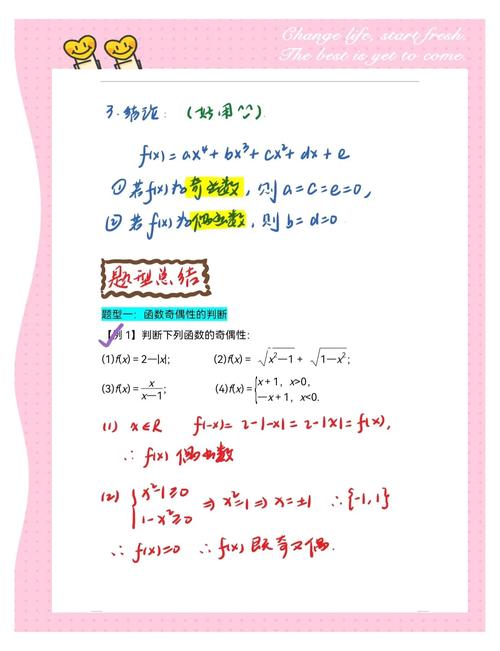 Change life, start fresh.
The best is yet to come.
3. 结论：(好用^^)
f(x)=ax⁴+bx³+cx²+dx+e
①若f(x)为奇函数，则a=c=e=0，
②若f(x)为偶函数，则b=d=0
题型总结
题型一：函数奇偶性的判断
【例 1】判断下列函数的奇偶性：
(1)f(x)=2-|x|; (2)f(x)= √(x²-1) + √(1-x²);
(3)f(x)=x/(x-1); (4)f(x)={x+1，x>0, -x+1，x<0.
(1) x∈R f(-x)=2-|-x|=2-|x|=f(x),
∴f(x)偶函数
(2) {x²-1≥0 1-x²≥0 ⇒x²=1⇒x=±1 ∴{-1,1}
∴f(x)=0 ∴f(x)既奇又偶.